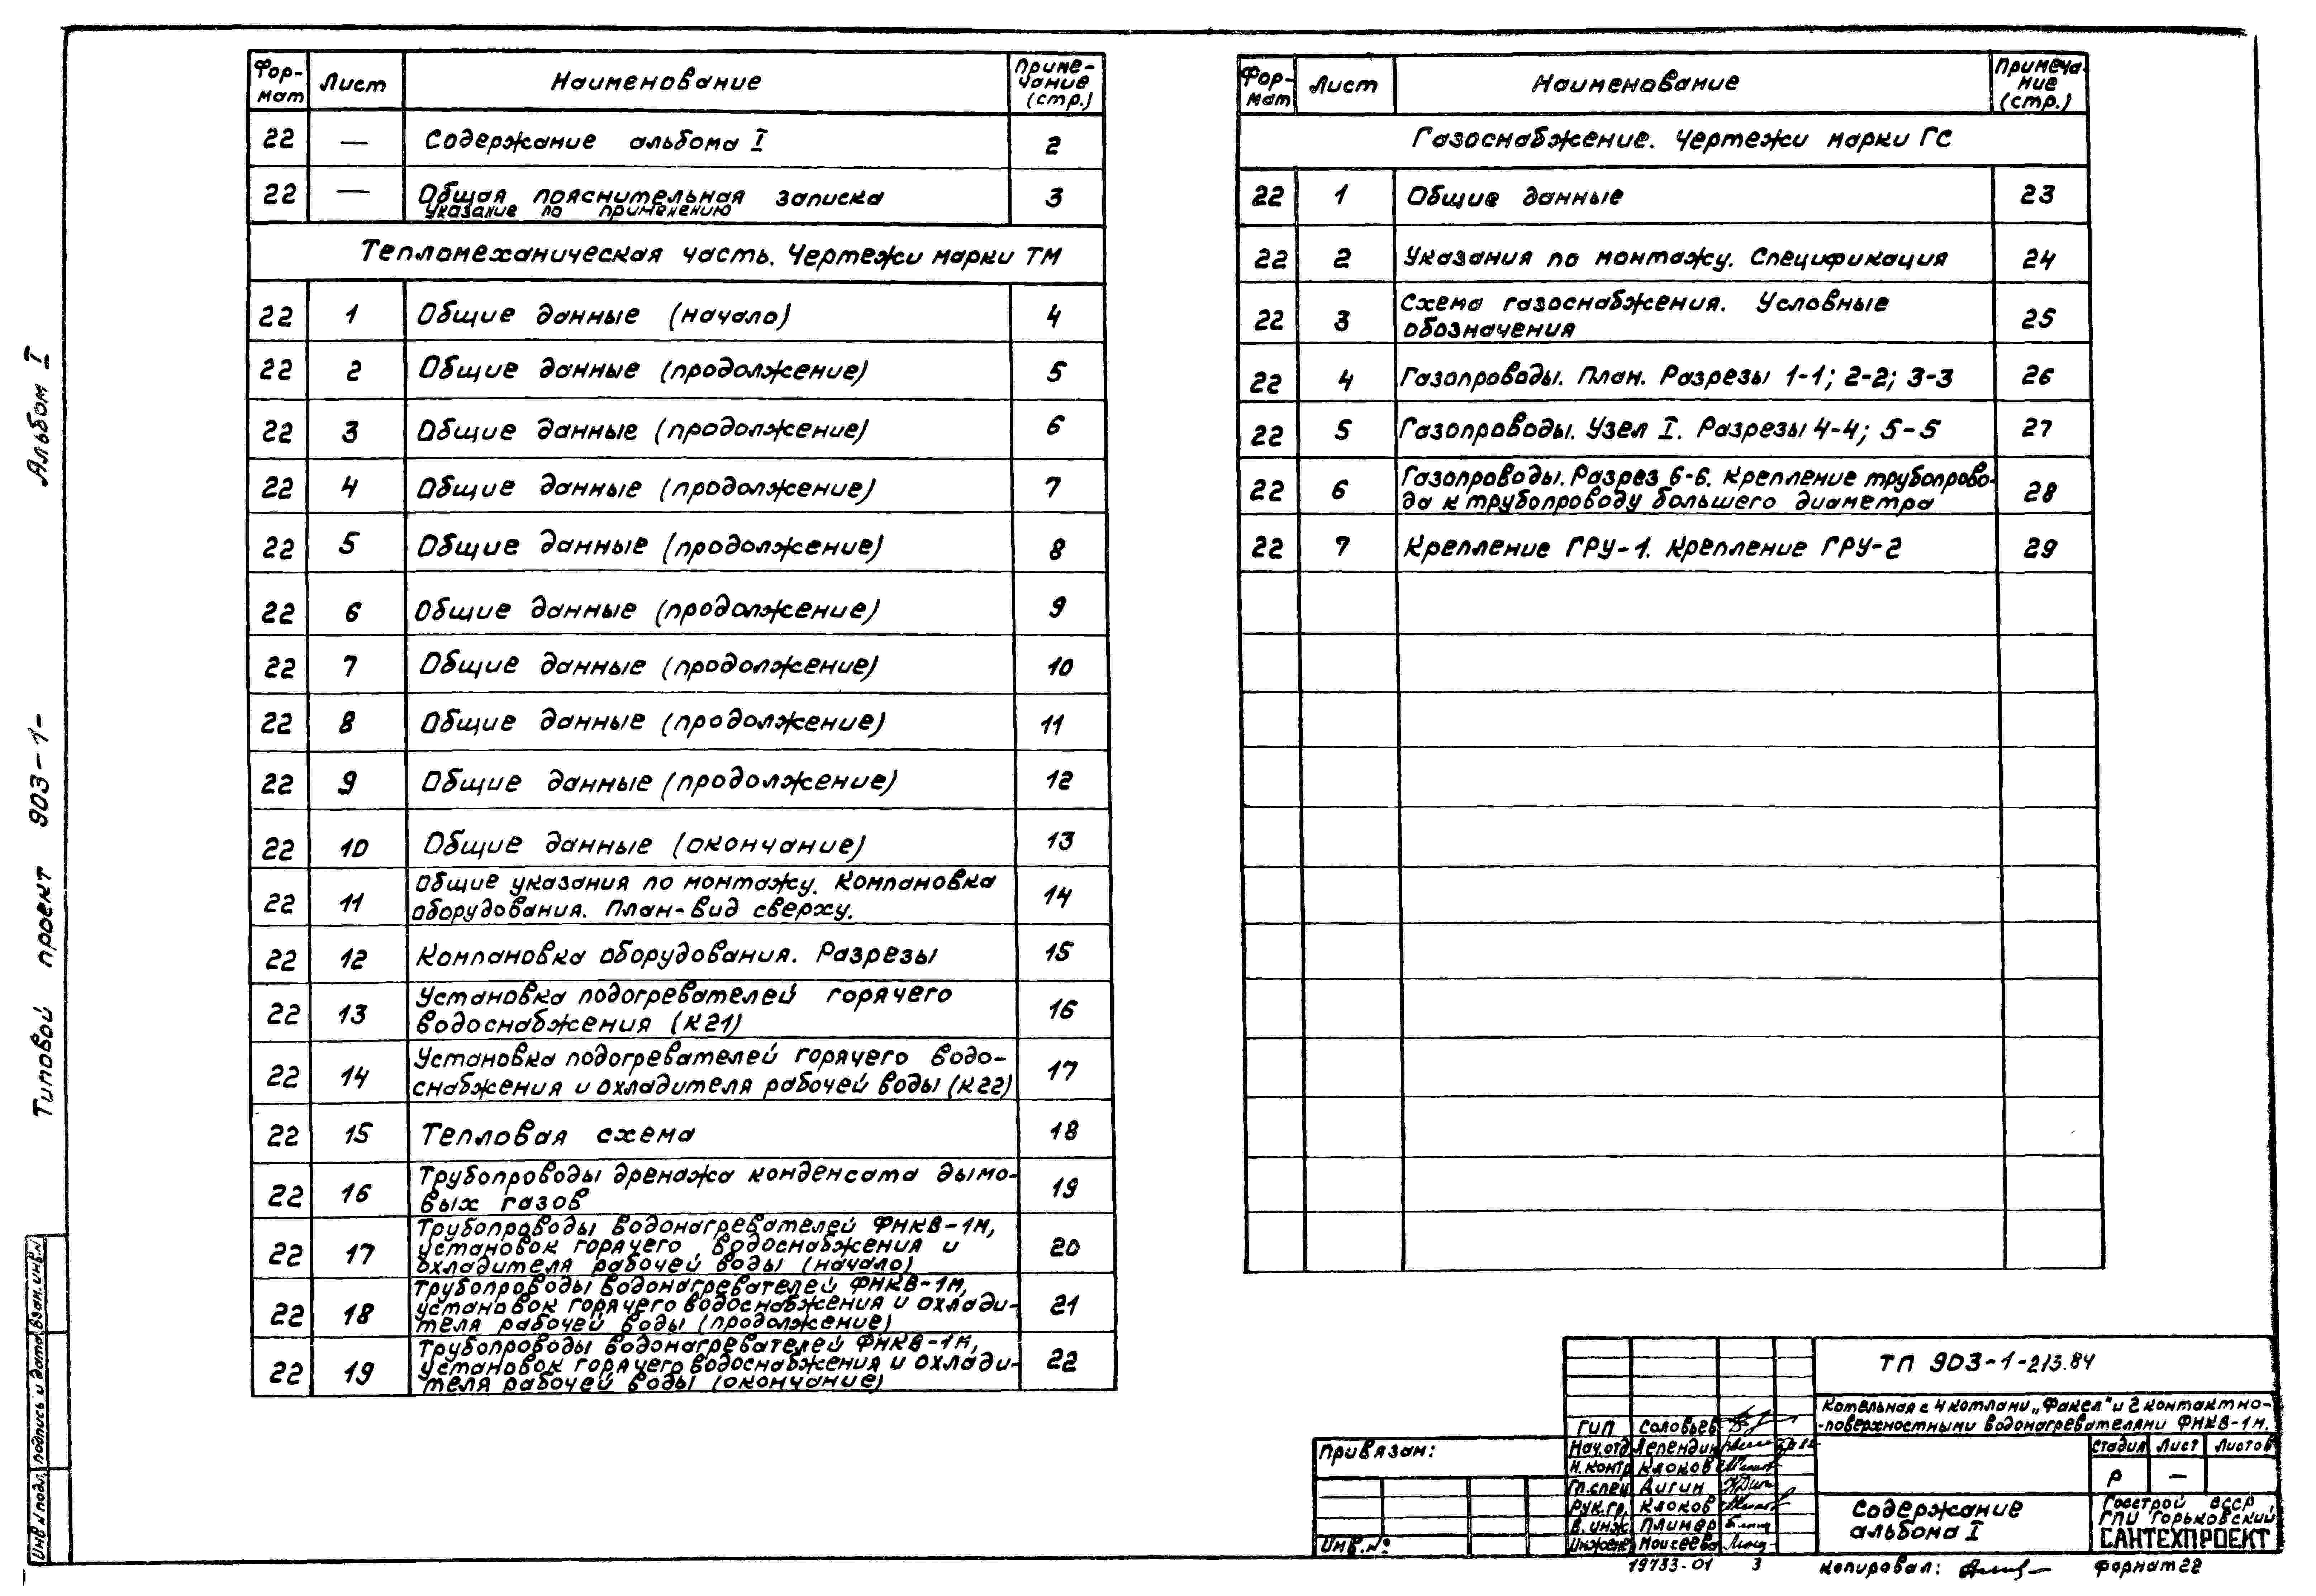 Альбом I
Типовой проект 903-1-
Фор-мат Лист Наименование Приме-чание (стр.)
22 — Содержание альбома I 2
22 — Общая пояснительная записка 3
Указание по применению
Тепломеханическая часть. Чертежи марки ТМ
22 1 Общие данные (начало) 4
22 2 Общие данные (продолжение) 5
22 3 Общие данные (продолжение) 6
22 4 Общие данные (продолжение) 7
22 5 Общие данные (продолжение) 8
22 6 Общие данные (продолжение) 9
22 7 Общие данные (продолжение) 10
22 8 Общие данные (продолжение) 11
22 9 Общие данные (продолжение) 12
22 10 Общие данные (окончание) 13
22 11 Общие указания по монтажу. Компановка
оборудования. План-вид сверху. 14
22 12 Компановка оборудования. Разрезы 15
22 13 Установка подогревателей горячего
водоснабжения (К21) 16
22 14 Установка подогревателей горячего водо-
снабжения и охладителя рабочей воды (К22) 17
22 15 Тепловая схема 18
22 16 Трубопроводы дренажа конденсата дымо-
вых газов 19
22 17 Трубопроводы водонагревателей ФНКВ-1М,
установок горячего водоснабжения и
охладителя рабочей воды (начало) 20
22 18 Трубопроводы водонагревателей ФНКВ-1М,
установок горячего водоснабжения и охлади-
теля рабочей воды (продолжение) 21
22 19 Трубопроводы водонагревателей ФНКВ-1М,
установок горячего водоснабжения и охлади-
теля рабочей воды (окончание) 22
Фор-мат Лист Наименование Примеча-ние (стр.)
Газоснабжение. Чертежи марки ГС
22 1 Общие данные 23
22 2 Указания по монтажу. Спецификация 24
22 3 Схема газоснабжения. Условные
обозначения 25
22 4 Газопроводы. План. Разрезы 1-1; 2-2; 3-3 26
22 5 Газопроводы. Узел I. Разрезы 4-4; 5-5 27
22 6 Газопроводы. Разрез 6-6. Крепление трубопрово-
да к трубопроводу большего диаметра 28
22 7 Крепление ГРУ-1. Крепление ГРУ-2 29
Инв.N подл. Подпись и дата Взам.инв.N
Привязан:
Инв.№
ГИП Соловьев
Нач.отд Лепендин
Н.контр Клоков
Гл.спец Дигин
Рук.гр. Клоков
В.инж. Плинер
Инжене Моисеева
ТП 903-1-213.84
Котельная с 4 котлами „Факел" и 2 контактно-
-поверхностными водонагревателями ФНКВ-1М.
Стадия Лист Листов
Р —
Содержание
альбома I
Госстрой СССР
ГПИ Горьковский
САНТЕХПРОЕКТ
19733-01 3
Копировал:
Формат 22